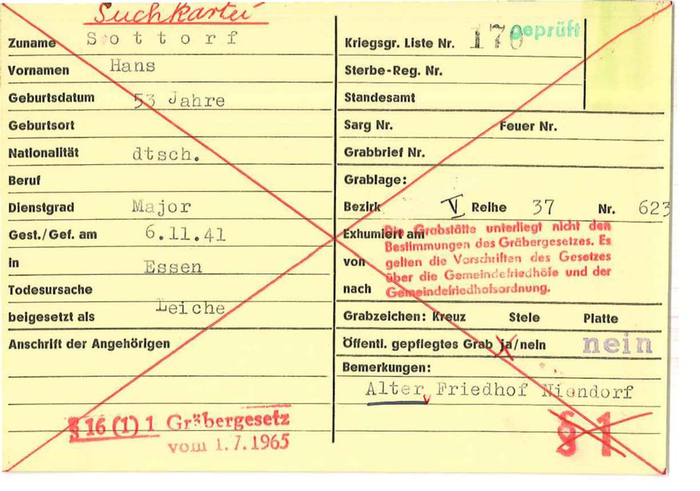 Suchkartei
Zuname Sottorf
Vornamen Hans
Geburtsdatum 53 Jahre
Geburtsort
Nationalität dtsch.
Beruf
Dienstgrad Major
Gest./Gef. am 6.11.41
in Essen
Todesursache
beigesetzt als Leiche
Anschrift der Angehörigen
§ 16 (1) 1 Gräbergesetz
vom 1.7.1965
Kriegsgr. Liste Nr. 170 geprüft
Sterbe-Reg. Nr.
Standesamt
Sarg Nr. Feuer Nr.
Grabbrief Nr.
Grablage:
Bezirk V Reihe 37 Nr. 623
Exhumiert am
von
nach
Die Grabstätte unterliegt nicht den
Bestimmungen des Gräbergesetzes. Es
gelten die Vorschriften des Gesetzes
über die Gemeindefriedhöfe und der
Gemeindefriedhofsordnung.
Grabzeichen: Kreuz Stele Platte
Öffentl. gepflegtes Grab ja/nein nein
Bemerkungen:
Alter Friedhof Niendorf
§ 1